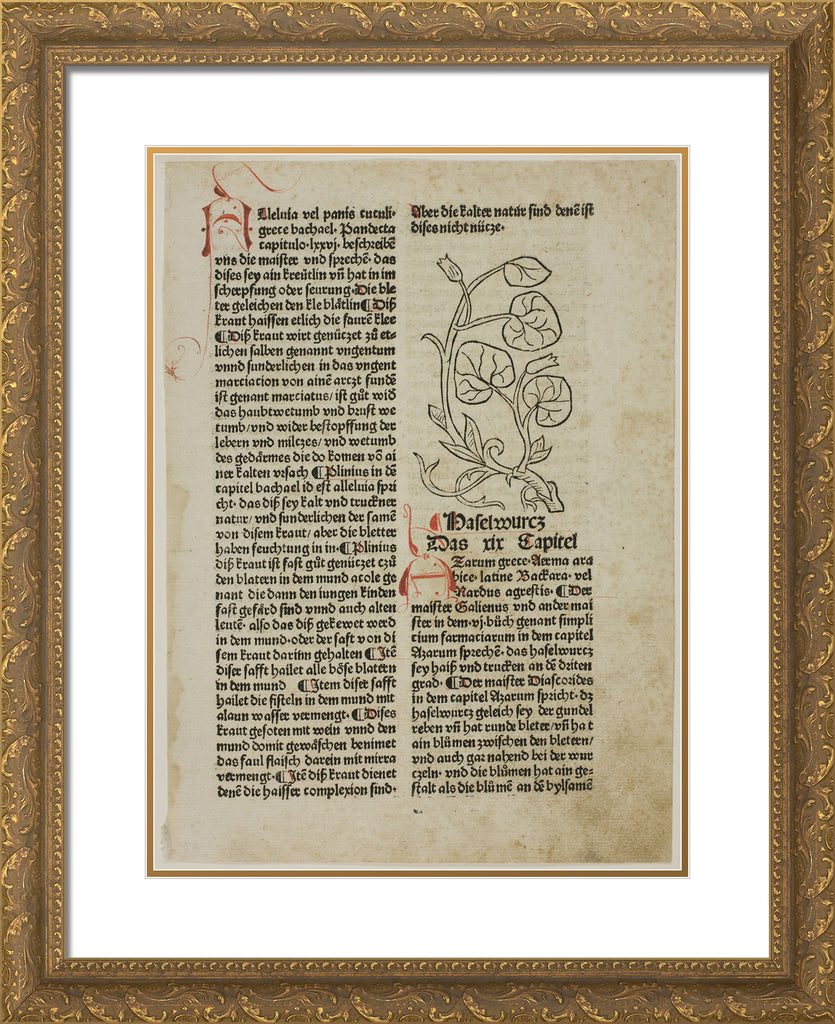 Alleluia vel panis cuculi·
grece bachael. Pandecta
capitulo·lxxvj· beschreibē
vns die maister vnd sprechē· das
dises sey ain kreütlin vñ hat in im
scherpfung oder seurung·Die ble
ter geleichen den kle blåtlin¶Diß
kraut haissen etlich die saurē klee
¶Diß kraut wirt genüczet zů et⸗
lichen salben genannt vngentum
vnnd sunderlichen in das vngent
marciation von ainē arczt fundē
ist genant marciatus/ ist gůt wid
das haubtwetumb vnd brust we
tumb/vnd wider bestopffung der
lebern vnd milczes/ vnd wetumb
des gedårmes die do komen vō ai
ner kalten vrsach ¶Plinius in dē
capitel bachael id est alleluia spri
cht· das diß sey kalt vnd truckner
natur/ vnd sunderlichen der samē
von disem kraut/ aber die bletter
haben feuchtung in in·¶Plinius
diß kraut ist fast gůt genüczet czů
den blatern in dem mund acole ge
nant die dann den iungen kinden
fast gefård sind vnnd auch alten
leutē· also das diß gekewet werd
in dem mund·oder der saft von di
sem kraut darinn gehalten ¶Itē
diser safft hailet alle bôse blatern
in dem mund ¶Item diser safft
hailet die fisteln in dem mund mit
alaun wasser vermengt·¶Dises
kraut gesoten mit wein vnnd den
mund domit gewåschen benimet
das faul flaisch darein mit mirra
vermengt·¶Itē diß kraut dienet
denē die haisser complexion sind·
Aber die kalter natur sind denē ist
dises nicht nücze·
¶Haselwurcz
Das xix Capitel
AZarum grece·Aerma ara
bice·latine Backara·vel
Nardus agrestis·¶Der
maister Galienus vnd ander mai
ster in dem·vj·bůch genant simpli
cium farmaciarum in dem capitel
Azarum sprechē·das haselwurcz
sey haiß vnd trucken an dē driten
grad·¶Der maister Diascorides
in dem capitel Azarum spricht·dz
haselwurcz geleich sey der gundel
reben vñ hat runde bleter/vñ hat
ain blůmen zwischen den bletern/
vnd auch gar nahend bei der wur
czeln·vnd die blůmen hat ain ge⸗
stalt als die blůmē an dē bylsamē